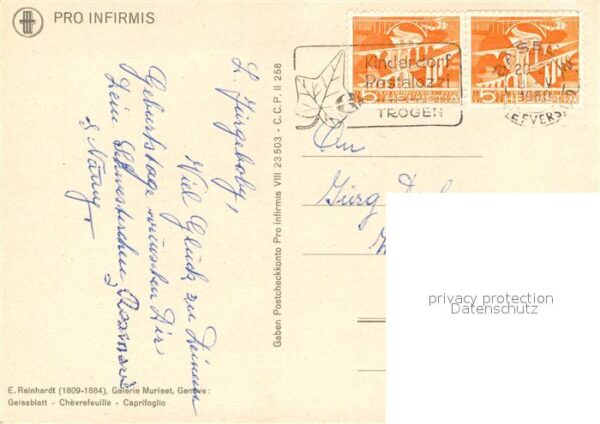 PRO INFIRMIS
L. Jürgeboby,
Viel Glück zu Deinem
Geburtstage wünschen Dir
Dein Schwesterchen Rosmarie
& Nänny.
E. Reinhardt (1809-1884), Galerie Muriset, Genève:
Geissblatt - Chèvrefeuille - Caprifoglio
Gaben Postcheckkonto Pro Infirmis VIII 23 503 - C.C.P. II 258
Kinderdorf
Pestalozzi
TROGEN
5 HELVETIA
5 HELVETIA
BRIEFVERSAND
An
Jürg
privacy protection
Datenschutz